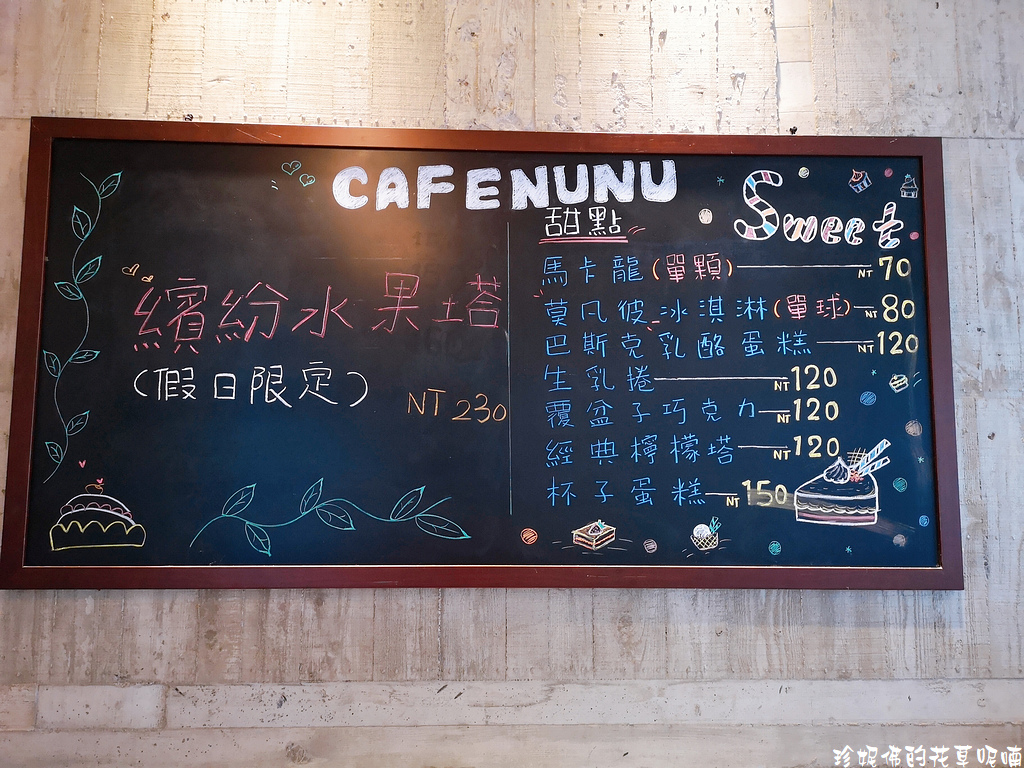 CAFENUNU
繽紛水果塔
(假日限定)
NT 230
甜點
Sweet
馬卡龍(單顆) NT 70
莫凡彼冰淇淋(單球) NT 80
巴斯克乳酪蛋糕 NT 120
生乳捲 NT 120
覆盆子巧克力 NT 120
經典檸檬塔 NT 120
杯子蛋糕 NT 150
珍妮佛的花草呢喃